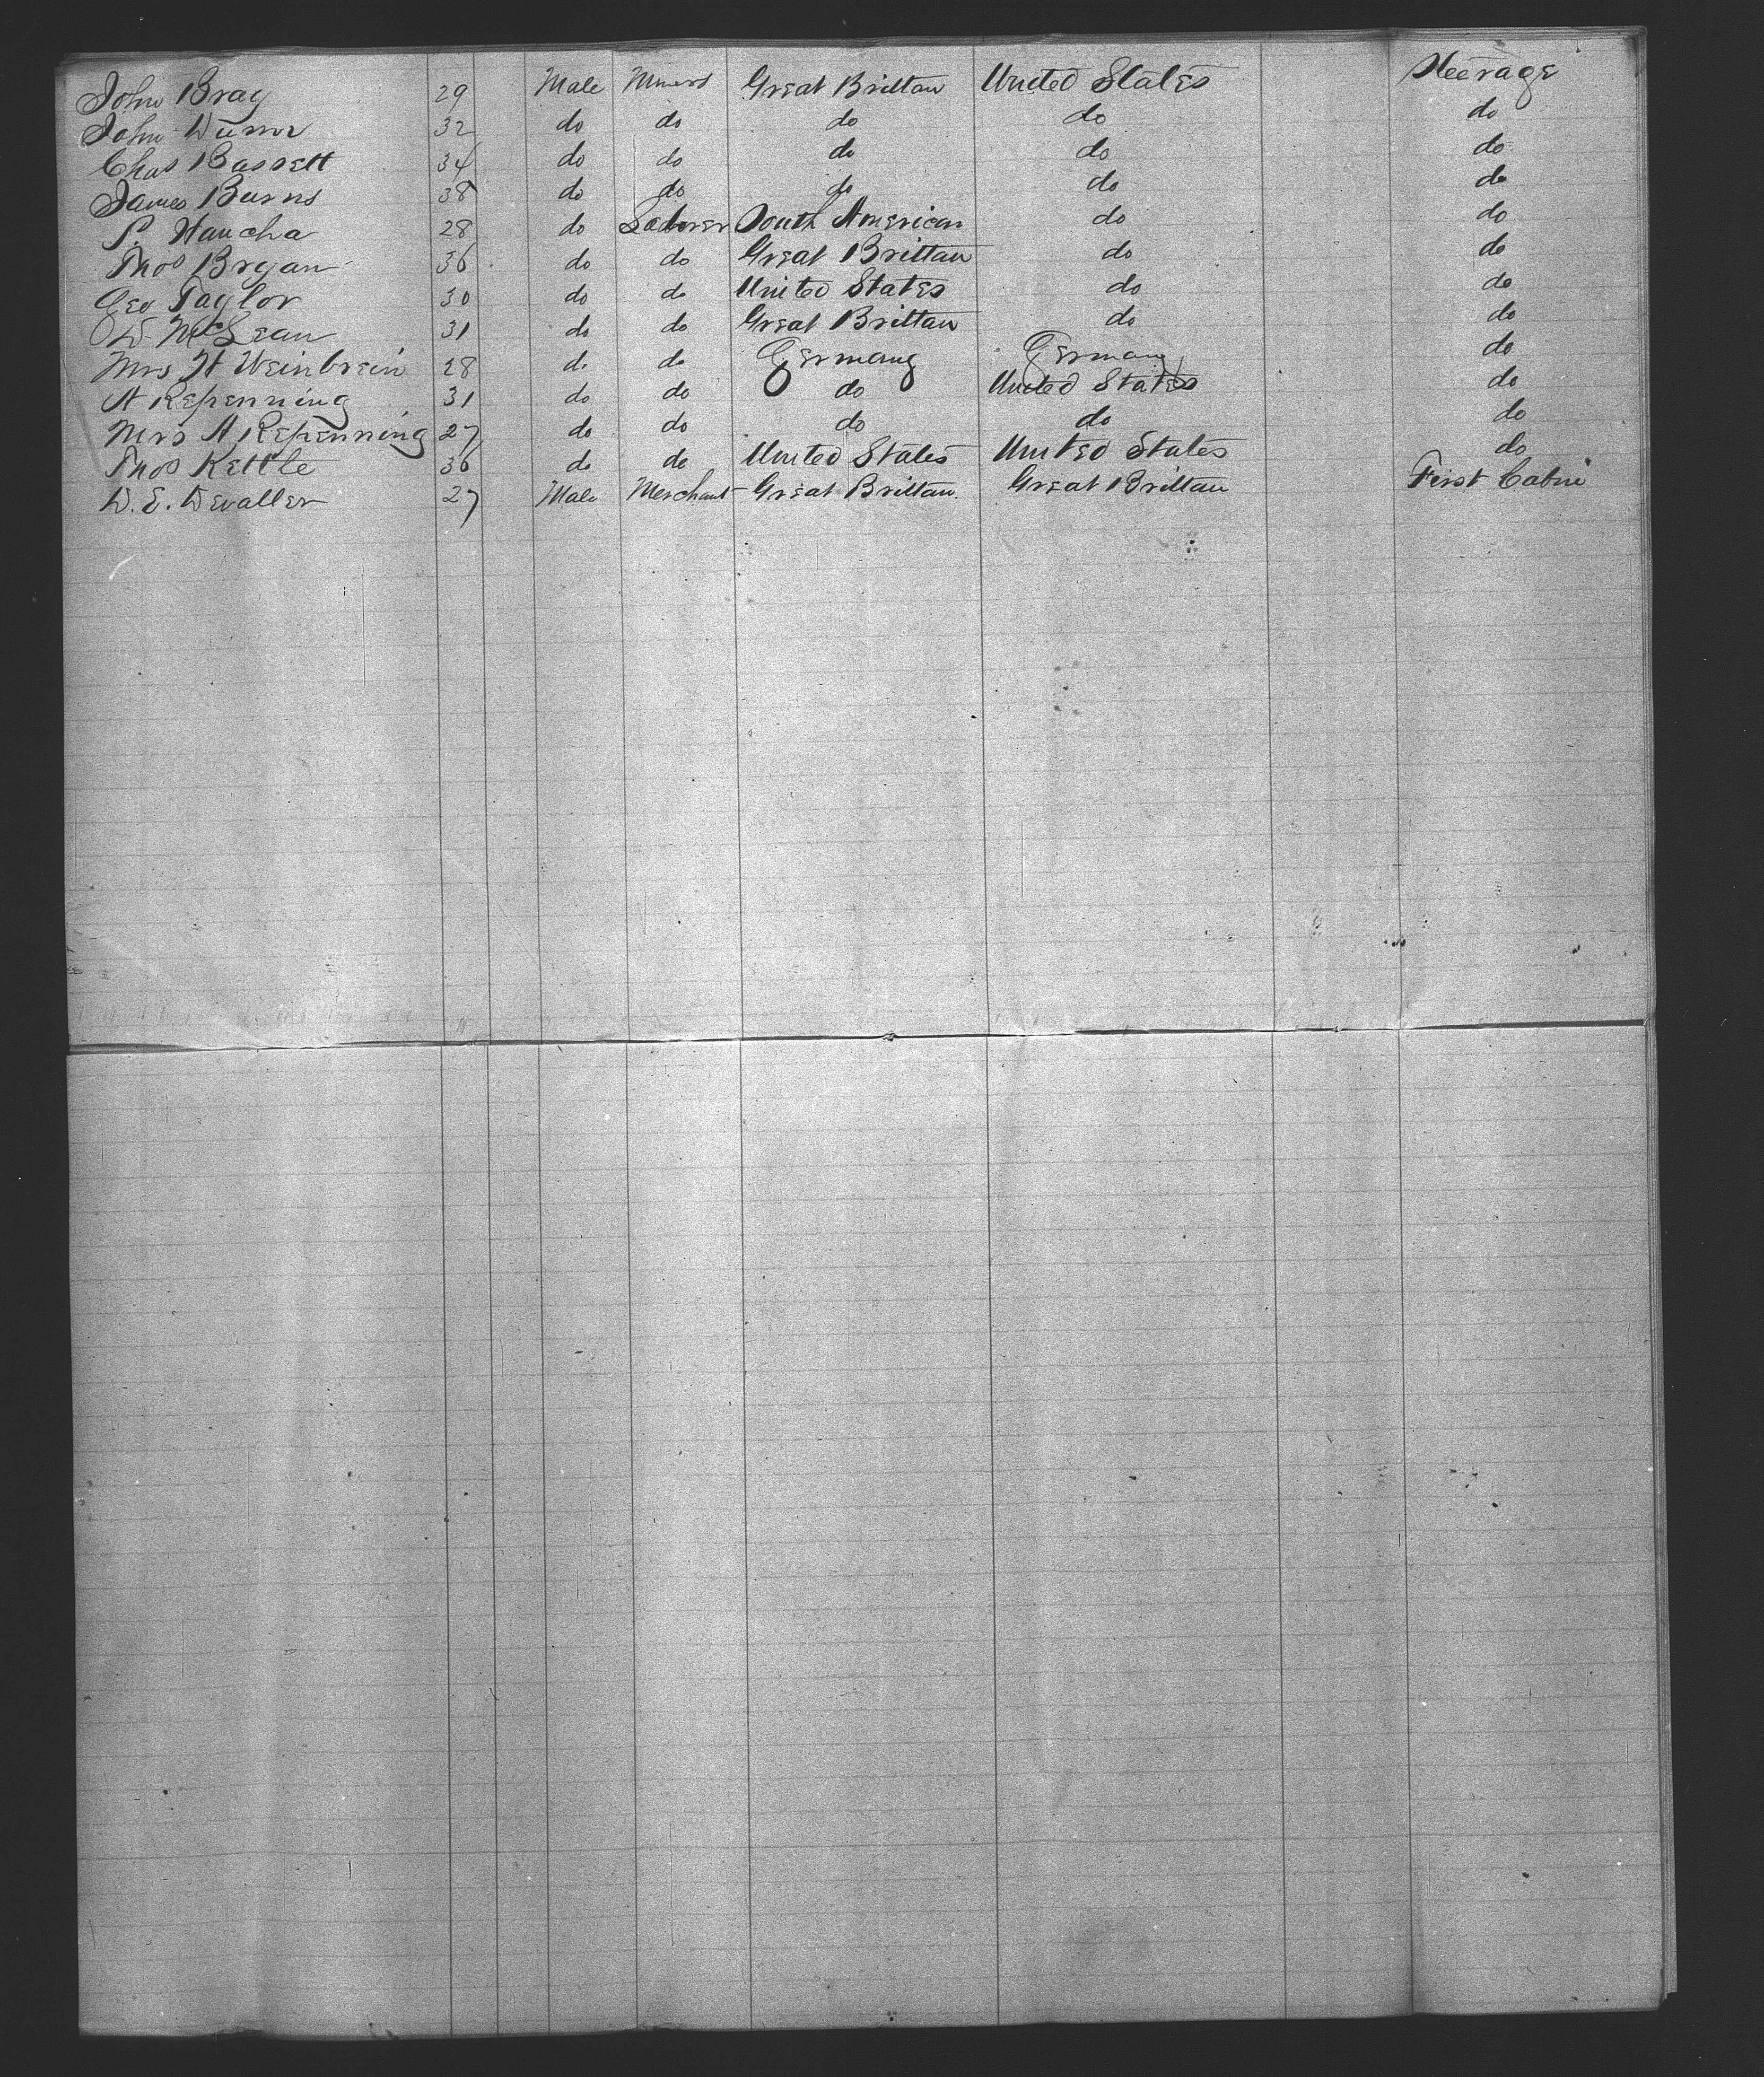 John Bray 29 Male Miners Great Brittan United States Steerage
John 32 do do do do do
Chas Bassett 34 do do do do do
James Burns 38 do do do do do
P. Hancha 28 do Laborer South American do do
Thos Bryan 36 do do Great Brittan do do
Geo Taylor 30 do do United States do do
D. McLean 31 do do Great Brittan do do
Mrs H Weinbrein 28 do do Germany Germany do
A Repenning 31 do do do United States do
Mrs A Repenning 27 do do do do do
Thos Kettle 36 do do United States United States do
D. E. Devaller 27 Male Merchant Great Brittan Great Brittan First Cabin